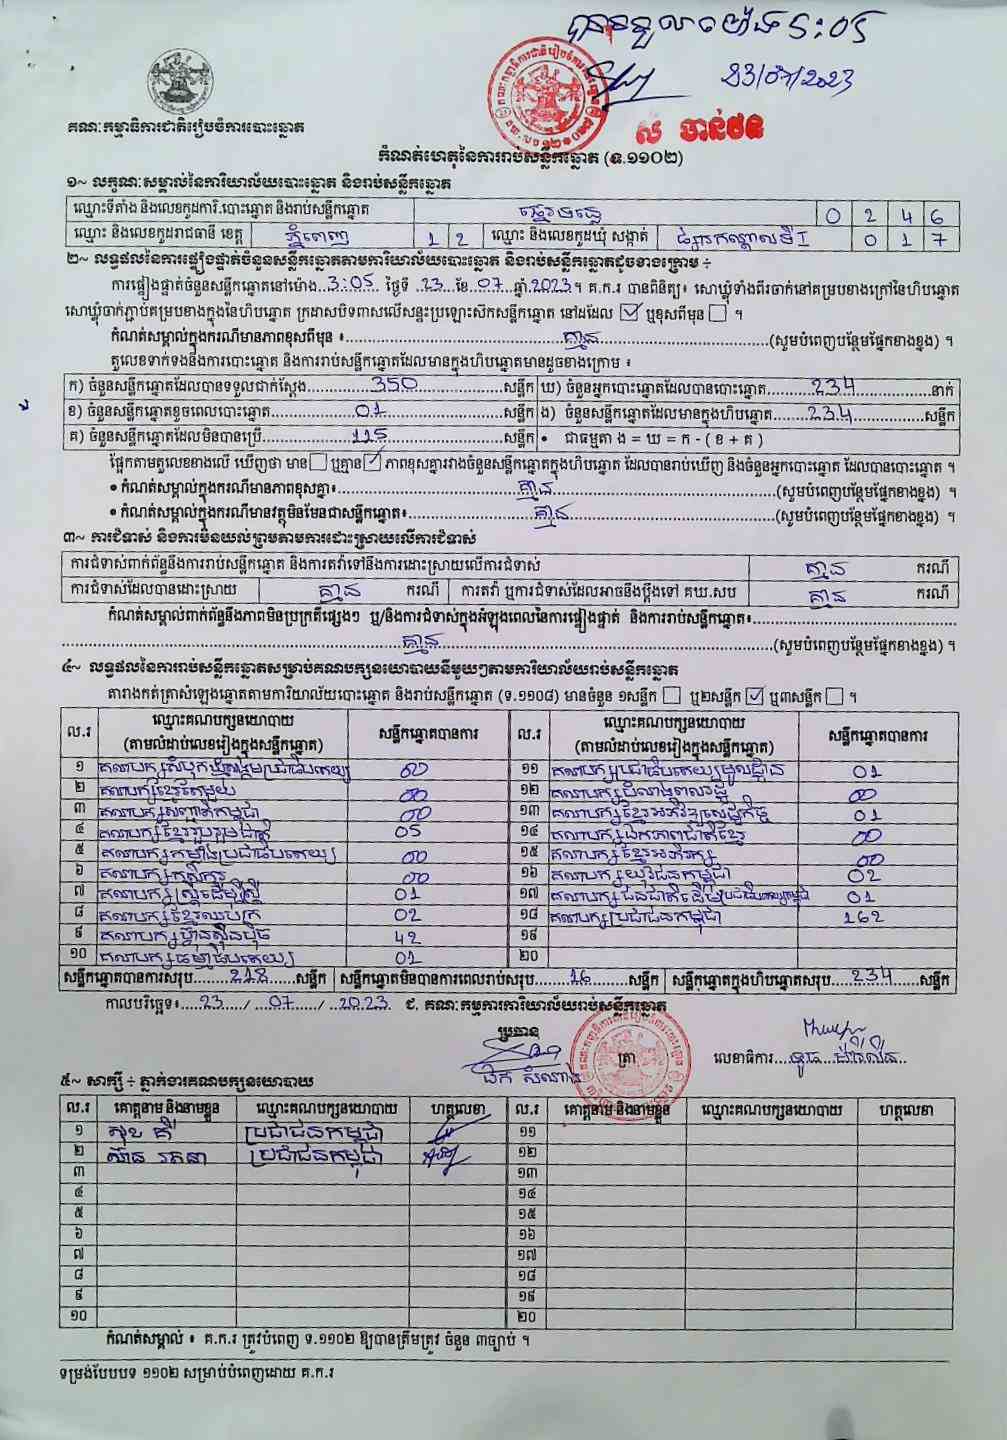 23/07/2023
គណៈកម្មាធិការជាតិរៀបចំការបោះឆ្នោត
ស ចាន់ថន
កំណត់ហេតុនៃការរាប់សន្លឹកឆ្នោត (ទ.១១០២)
១~ លក្ខណៈសម្គាល់នៃការិយាល័យបោះឆ្នោត និងរាប់សន្លឹកឆ្នោត
ឈ្មោះទីតាំង និងលេខកូដការិ.បោះឆ្នោត និងរាប់សន្លឹកឆ្នោត 0 2 4 6
ឈ្មោះ និងលេខកូដរាជធានី ខេត្ត ភ្នំពេញ 1 2 ឈ្មោះ និងលេខកូដឃុំ សង្កាត់ ផ្សារកណ្តាលទី I 0 1 7
២~ លទ្ធផលនៃការផ្ទៀងផ្ទាត់ចំនួនសន្លឹកឆ្នោតតាមការិយាល័យបោះឆ្នោត និងរាប់សន្លឹកឆ្នោតដូចខាងក្រោម ÷
ការផ្ទៀងផ្ទាត់ចំនួនសន្លឹកឆ្នោតនៅម៉ោង 3:05 ថ្ងៃទី 23 ខែ 07 ឆ្នាំ 2023 ។ គ.ក.រ បានពិនិត្យ៖ សោឃ្លុំទាំងពីរចាក់នៅគម្របខាងក្រៅនៃហិបឆ្នោត
សោឃ្លុំចាក់ភ្ជាប់គម្របខាងក្នុងនៃហិបឆ្នោត ក្រដាសបិទពាសលើសន្ទះប្រឡោះស៊កសន្លឹកឆ្នោត នៅដដែល ☑ ឬខុសពីមុន ☐ ។
កំណត់សម្គាល់ក្នុងករណីមានភាពខុសពីមុន ៖ គ្មាន (សូមបំពេញបន្ថែមផ្នែកខាងខ្នង) ។
តួលេខទាក់ទងនឹងការបោះឆ្នោត និងការរាប់សន្លឹកឆ្នោតដែលមានក្នុងហិបឆ្នោតមានដូចខាងក្រោម ៖
ក) ចំនួនសន្លឹកឆ្នោតដែលបានទទួលជាក់ស្តែង 350 សន្លឹក ឃ) ចំនួនអ្នកបោះឆ្នោតដែលបានបោះឆ្នោត 234 នាក់
ខ) ចំនួនសន្លឹកឆ្នោតខូចពេលបោះឆ្នោត 01 សន្លឹក ង) ចំនួនសន្លឹកឆ្នោតដែលមានក្នុងហិបឆ្នោត 234 សន្លឹក
គ) ចំនួនសន្លឹកឆ្នោតដែលមិនបានប្រើ 115 សន្លឹក • ជាធម្មតា ង = ឃ = ក - ( ខ + គ )
ផ្អែកតាមតួលេខខាងលើ ឃើញថា មាន ☐ ឬគ្មាន ☑ ភាពខុសគ្នារវាងចំនួនសន្លឹកឆ្នោតក្នុងហិបឆ្នោត ដែលបានរាប់ឃើញ និងចំនួនអ្នកបោះឆ្នោត ដែលបានបោះឆ្នោត ។
• កំណត់សម្គាល់ក្នុងករណីមានភាពខុសគ្នា៖ គ្មាន (សូមបំពេញបន្ថែមផ្នែកខាងខ្នង) ។
• កំណត់សម្គាល់ក្នុងករណីមានវត្ថុមិនមែនជាសន្លឹកឆ្នោត៖ គ្មាន (សូមបំពេញបន្ថែមផ្នែកខាងខ្នង) ។
៣~ ការជំទាស់ និងការមិនយល់ព្រមតាមការដោះស្រាយលើការជំទាស់
ការជំទាស់ពាក់ព័ន្ធនឹងការរាប់សន្លឹកឆ្នោត និងការតវ៉ាទៅនឹងការដោះស្រាយលើការជំទាស់ គ្មាន ករណី
ការជំទាស់ដែលបានដោះស្រាយ គ្មាន ករណី ការតវ៉ា ឬការជំទាស់ដែលអាចនឹងប្តឹងទៅ គឃ.សប គ្មាន ករណី
កំណត់សម្គាល់ពាក់ព័ន្ធនឹងភាពមិនប្រក្រតីផ្សេងៗ ឬ/និងការជំទាស់ក្នុងអំឡុងពេលនៃការផ្ទៀងផ្ទាត់ និងការរាប់សន្លឹកឆ្នោត៖
គ្មាន (សូមបំពេញបន្ថែមផ្នែកខាងខ្នង) ។
៤~ លទ្ធផលនៃការរាប់សន្លឹកឆ្នោតសម្រាប់គណបក្សនយោបាយនីមួយៗតាមការិយាល័យរាប់សន្លឹកឆ្នោត
តារាងកត់ត្រាសំឡេងឆ្នោតតាមការិយាល័យបោះឆ្នោត និងរាប់សន្លឹកឆ្នោត (ទ.១១០៨) មានចំនួន ១សន្លឹក ☐ ឬ២សន្លឹក ☑ ឬ៣សន្លឹក ☐ ។
ល.រ ឈ្មោះគណបក្សនយោបាយ (តាមលំដាប់លេខរៀងក្នុងសន្លឹកឆ្នោត) សន្លឹកឆ្នោតបានការ ល.រ ឈ្មោះគណបក្សនយោបាយ (តាមលំដាប់លេខរៀងក្នុងសន្លឹកឆ្នោត) សន្លឹកឆ្នោតបានការ
១ គណបក្សសំបុកឃ្មុំសង្គមប្រជាធិបតេយ្យ 00 ១១ គណបក្សប្រជាធិបតេយ្យមូលដ្ឋាន 01
២ គណបក្សខ្មែរតែមួយ 00 ១២ គណបក្សបំរើជាតិ 00
៣ គណបក្សសញ្ជាតិកម្ពុជា 00 ១៣ គណបក្សខ្មែរអភិវឌ្ឍសេដ្ឋកិច្ច 01
៤ គណបក្សខ្មែររួបរួមជាតិ 05 ១៤ គណបក្សឯកភាពជាតិខ្មែរ 00
៥ គណបក្សកម្លាំងប្រជាធិបតេយ្យ 00 ១៥ គណបក្សខ្មែរអភិរក្ស 00
៦ គណបក្សកសិករ 00 ១៦ គណបក្សយុវជនកម្ពុជា 02
៧ គណបក្សស្ត្រីដើម្បីស្ត្រី 01 ១៧ គណបក្សជនជាតិដើមប្រជាធិបតេយ្យកម្ពុជា 01
៨ គណបក្សខ្មែរឈប់ក្រ 02 ១៨ គណបក្សប្រជាជនកម្ពុជា 162
៩ គណបក្សហ៊្វុនស៊ិនប៉ិច 42 ១៩
១០ គណបក្សធម្មាធិបតេយ្យ 01 ២០
សន្លឹកឆ្នោតបានការសរុប 218 សន្លឹក សន្លឹកឆ្នោតមិនបានការពេលរាប់សរុប 16 សន្លឹក សន្លឹកឆ្នោតក្នុងហិបឆ្នោតសរុប 234 សន្លឹក
កាលបរិច្ឆេទ៖ 23 / 07 / 2023 ជ. គណៈកម្មការការិយាល័យរាប់សន្លឹកឆ្នោត
ប្រធាន
ត្រា លេខាធិការ
ឯក សំណាង
៥~ សាក្សី ÷ ភ្នាក់ងារគណបក្សនយោបាយ
ល.រ គោត្តនាម និងនាមខ្លួន ឈ្មោះគណបក្សនយោបាយ ហត្ថលេខា ល.រ គោត្តនាម និងនាមខ្លួន ឈ្មោះគណបក្សនយោបាយ ហត្ថលេខា
១ សុខ គី ប្រជាជនកម្ពុជា ១១
២ រតនា ប្រជាជនកម្ពុជា ១២
៣ ១៣
៤ ១៤
៥ ១៥
៦ ១៦
៧ ១៧
៨ ១៨
៩ ១៩
១០ ២០
កំណត់សម្គាល់ ៖ គ.ក.រ ត្រូវបំពេញ ទ.១១០២ ឱ្យបានត្រឹមត្រូវ ចំនួន ៣ច្បាប់ ។
ទម្រង់បែបបទ ១១០២ សម្រាប់បំពេញដោយ គ.ក.រ